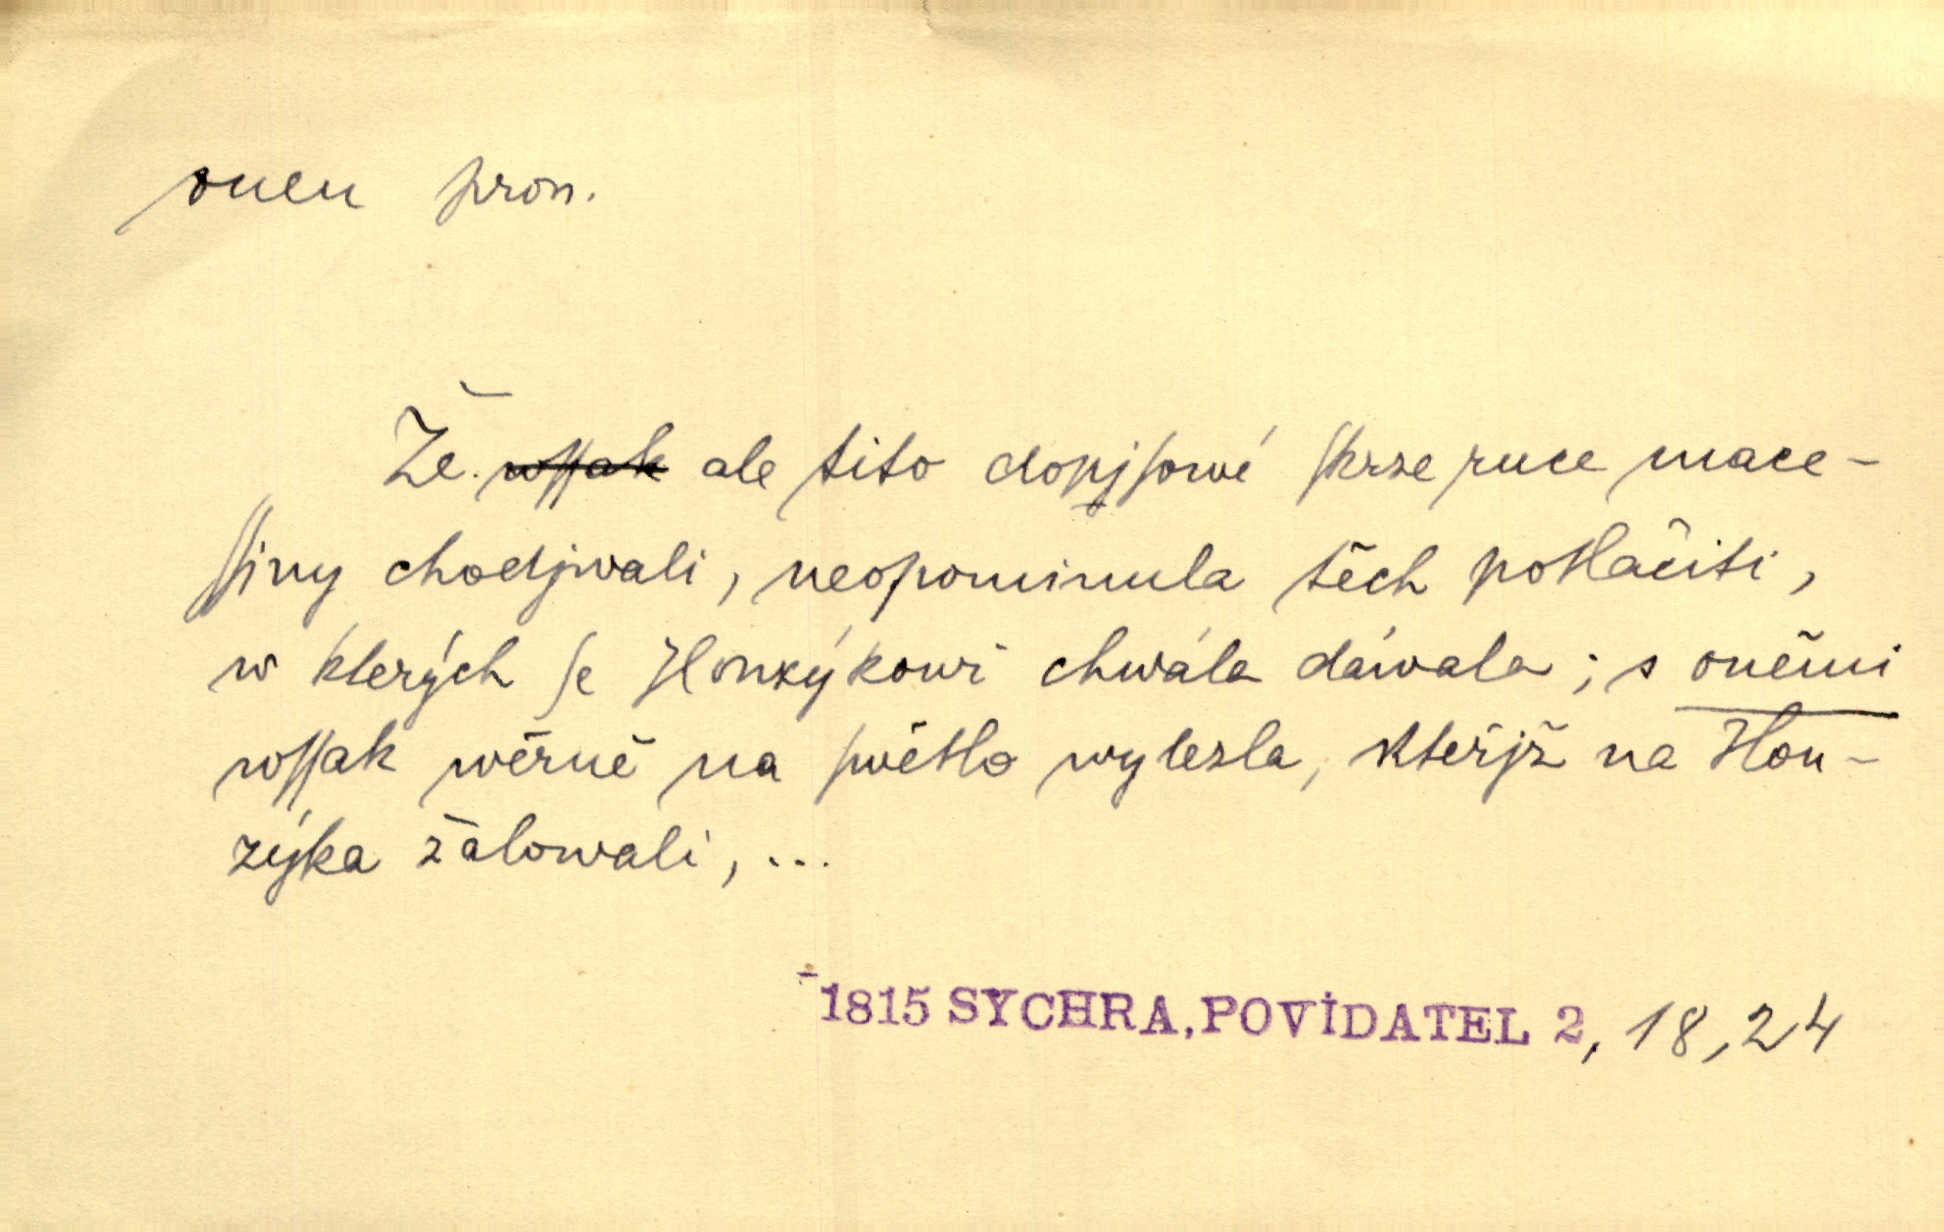 onen pron.
Že wſſak ale tito dopjſowé ſkrze ruce mace-
ſſiny chodjwali, neopominula těch potlačiti,
w kterých ſe Honzýkowi chwála dáwala; s oněmi
wſſak wěrně na ſwětlo wylezla, kteřjž na Hon-
zýka žalowali, ...
1815 SYCHRA, POVÍDATEL 2, 18, 24